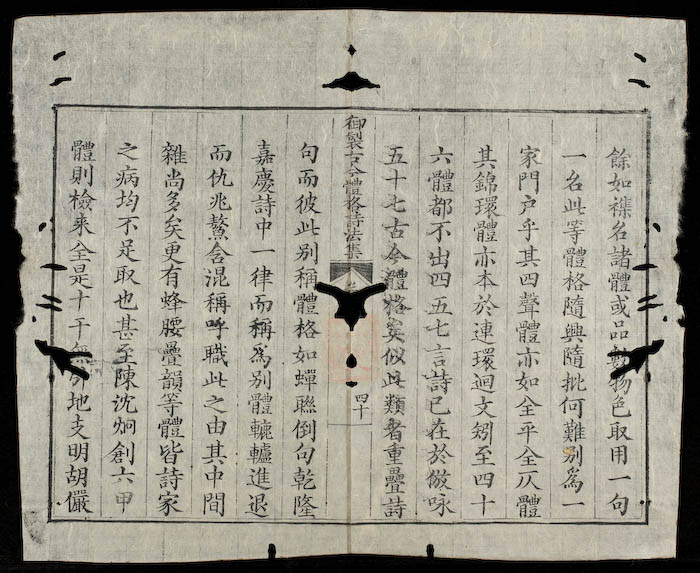 餘如襍名諸體或品彙物色取用一句
一名此等體格隨興隨批何難别爲一
家門户乎其四聲體亦如全平全仄體
其錦環體亦本於連環迴文矧至四十
六體都不出四五七言詩已在於倣咏
五十七古今體格矣似此類者重疊詩
御製古今體格詩法集
四十
句而彼此别稱體格如蟬聮倒句乾隆
嘉慶詩中一律而稱爲别體轆轤進退
而仇兆鰲含混稱呼職此之由其中間
雜尚多矣更有蜂腰疊韻等體皆詩家
之病均不足取也甚至陳沈炯創六甲
體則檢来全是十干無 地支明胡儼